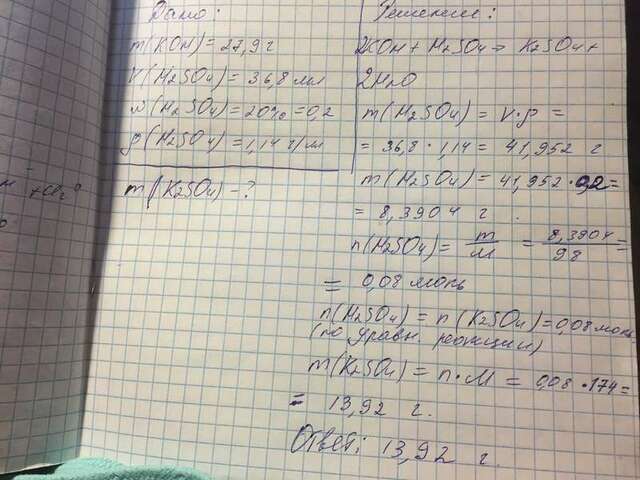 Дано:
m(KOH) = 27,9 г
V(H2SO4) = 36,8 мл
ω(H2SO4) = 20% = 0,2
ρ(H2SO4) = 1,14 г/мл
m(K2SO4) - ?
Решение:
2KOH + H2SO4 → K2SO4 +
2H2O
m(H2SO4) = V·ρ =
= 36,8 · 1,14 = 41,952 г
m(H2SO4) = 41,952 · 0,2 =
= 8,3904 г.
n(H2SO4) = m/M = 8,3904/98 =
= 0,08 моль
n(H2SO4) = n(K2SO4) = 0,08 моль
(по уравн. реакции)
m(K2SO4) = n·M = 0,08 · 174 =
= 13,92 г.
Ответ: 13,92 г.